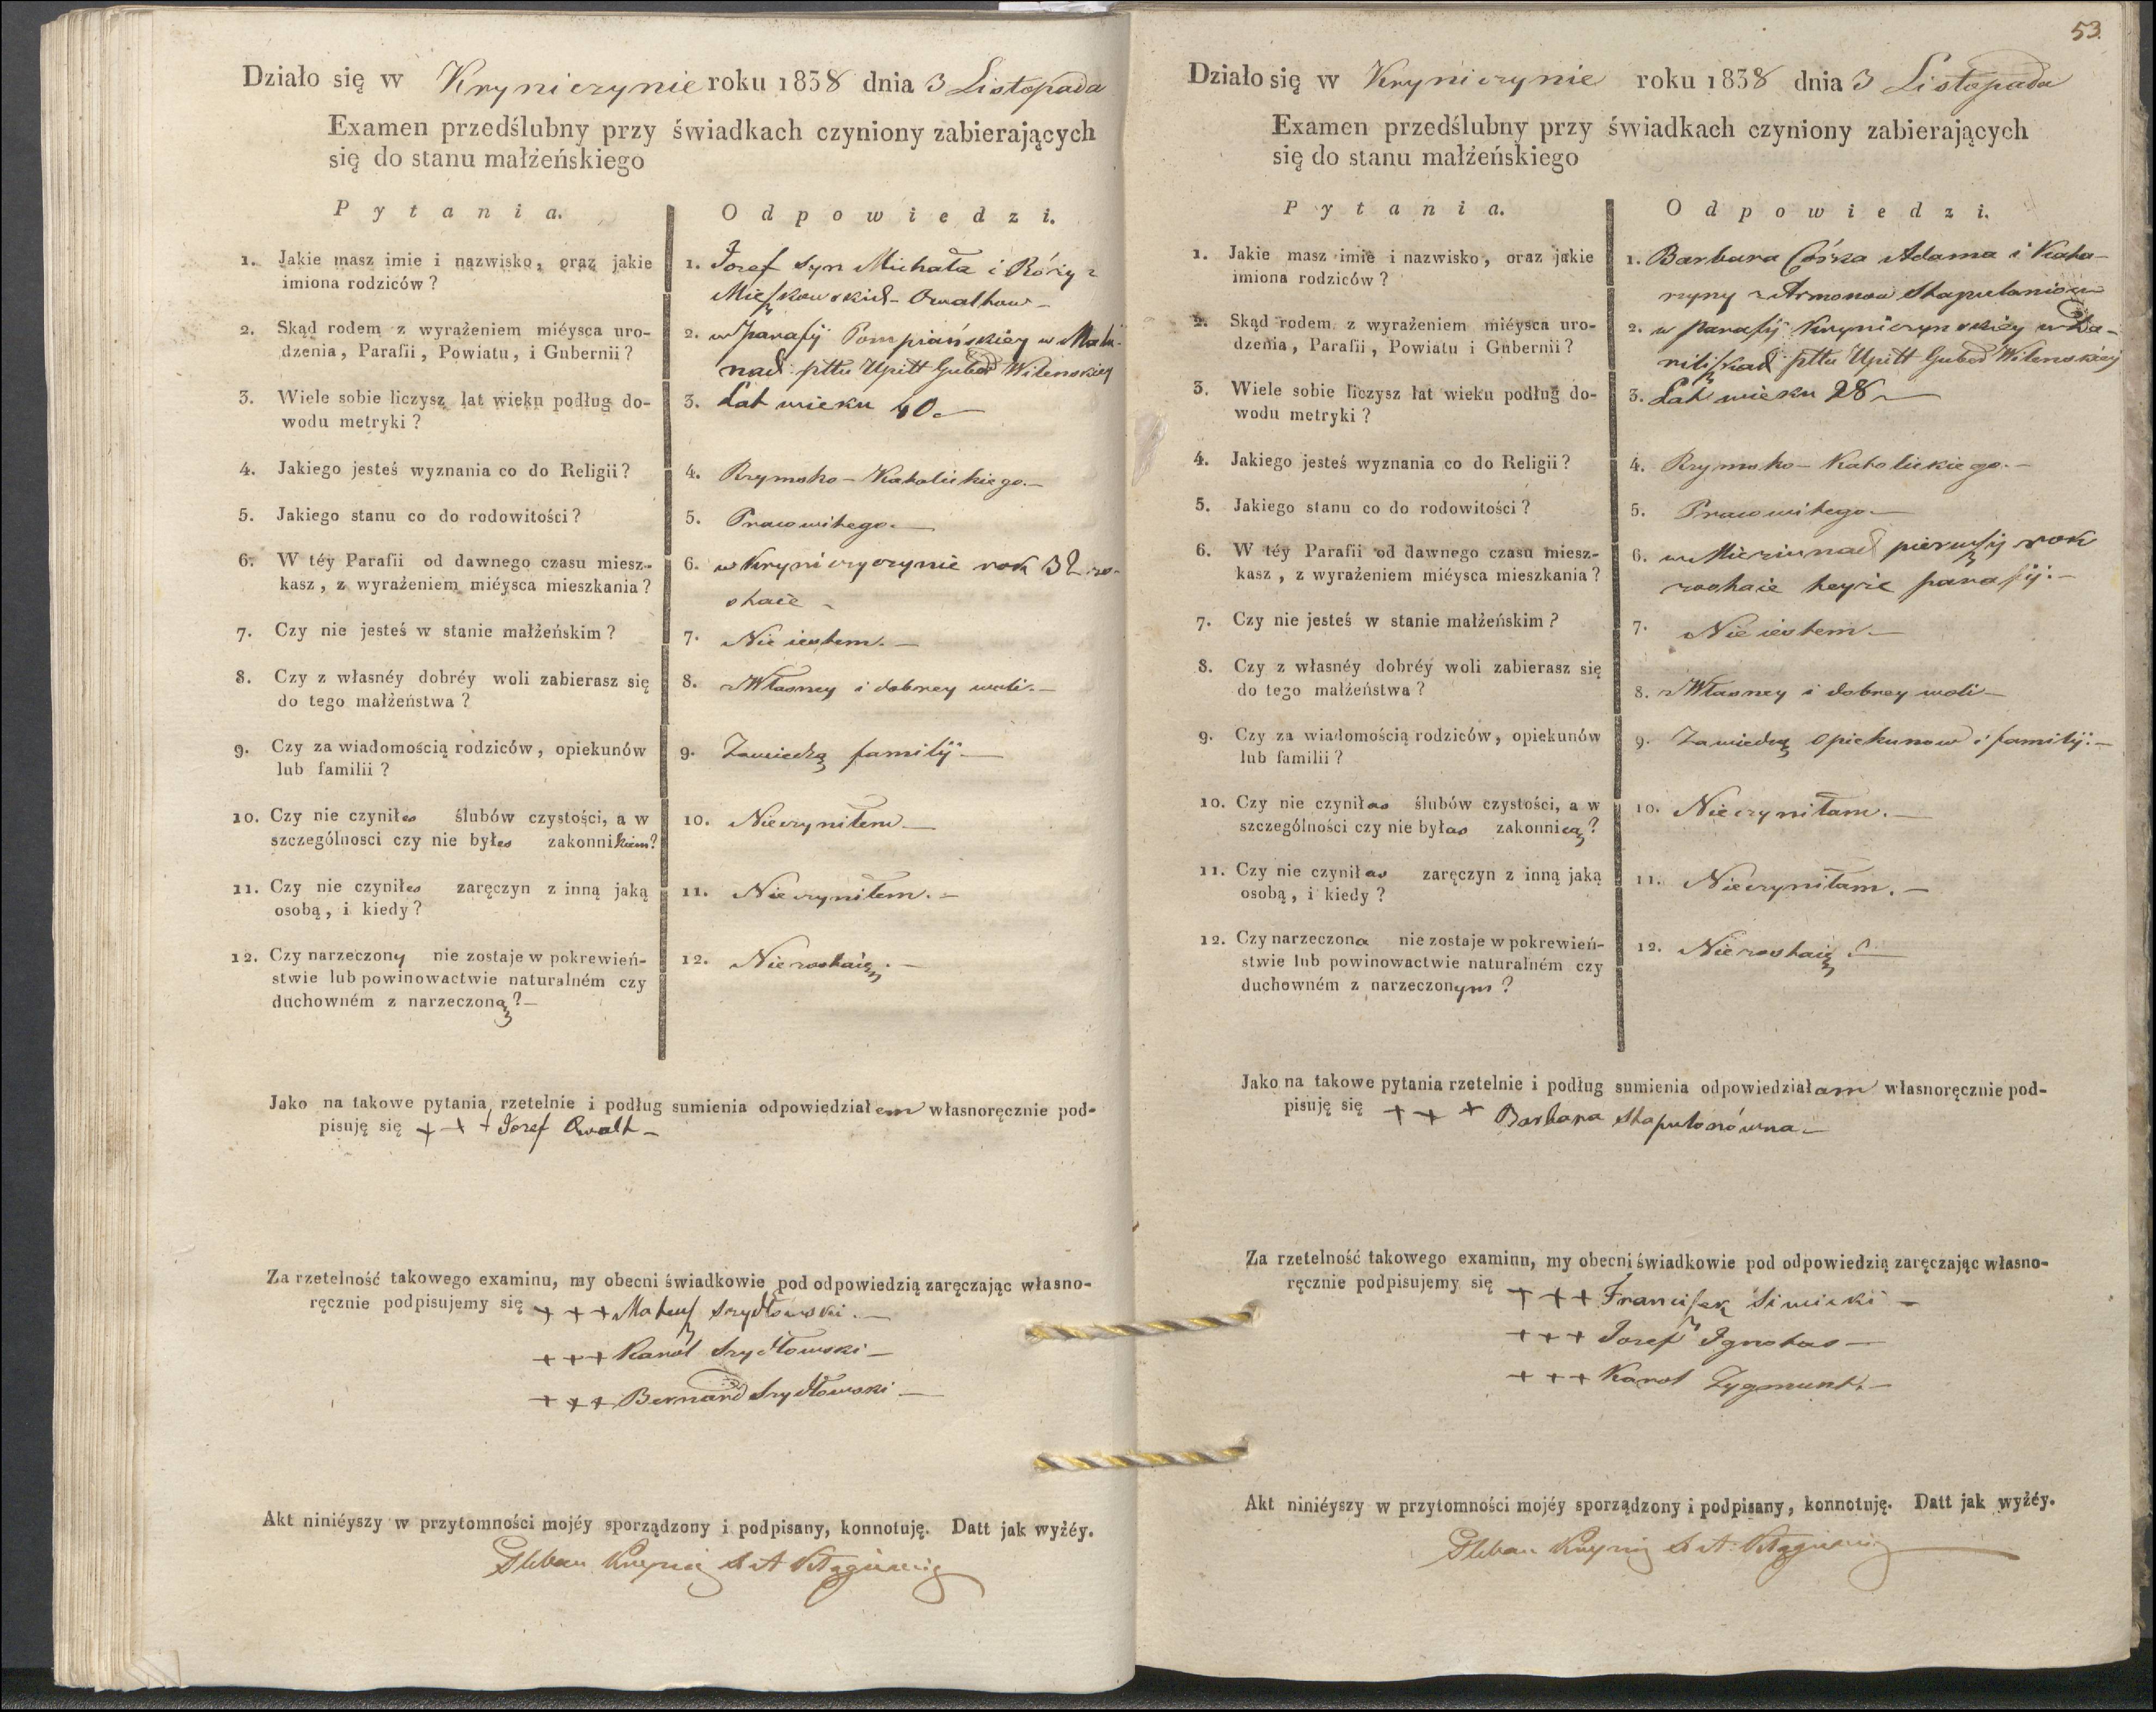 Działo się w Kryniczynie roku 1838 dnia 3 Listopada
Examen przedślubny przy świadkach czyniony zabierających
się do stanu małżeńskiego
Pytania.
Odpowiedzi.
1. Jakie masz imie i nazwisko, oraz jakie
imiona rodziców?
1. Jozef Syn Michała i Róży z
2. Skąd rodem z wyrażeniem miéysca uro-
dzenia, Parafii, Powiatu, i Gubernii?
2. w parafij Pompiańskiey w
nach pttu Upitt Guber Wilenskiey
3. Wiele sobie liczysz lat wieku podług do-
wodu metryki?
3. Lat wieku 40
4. Jakiego jesteś wyznania co do Religii?
4. Rzymsko-Katolickiego.—
5. Jakiego stanu co do rodowitości?
5. Prawowitego.—
6. W téy Parafii od dawnego czasu miesz-
kasz, z wyrażeniem miéysca mieszkania?
6. w Kryniczyczynie rok 32 zo-
staie
7. Czy nie jesteś w stanie małżeńskim?
7. Nie iestem.—
8. Czy z własnéy dobréy woli zabierasz się
do tego małżeństwa?
8. z Własney i dobrey woli.—
9. Czy za wiadomością rodziców, opiekunów
lub familii?
9. Zawiedzą familij.—
10. Czy nie czyniłes ślubów czystości, a w
szczególnosci czy nie byłes zakonnikiem?
10. Nieczyniłem—
11. Czy nie czyniłes zaręczyn z inną jaką
osobą, i kiedy?
11. Nieczyniłem.—
12. Czy narzeczony nie zostaje w pokrewień-
stwie lub powinowactwie naturalném czy
duchowném z narzeczoną?—
12. Niezostaię.—
Jako na takowe pytania rzetelnie i podług sumienia odpowiedziałem własnoręcznie pod-
pisuję się + + + Jozef Owalt—
Za rzetelność takowego examinu, my obecni świadkowie pod odpowiedzią zaręczając własno-
ręcznie podpisujemy się + + + Mateusz Szydłowski.—
+ + + Karol Szydłowski—
+ + + Bernard Szydłowski—
Akt niniéyszy w przytomności mojéy sporządzony i podpisany, konnotuję. Datt jak wyżéy.
Pleban
53.
Działo się w Kryniczynie roku 1838 dnia 3 Listopada
Examen przedślubny przy świadkach czyniony zabierających
się do stanu małżeńskiego
Pytania.
Odpowiedzi.
1. Jakie masz imie i nazwisko, oraz jakie
imiona rodziców?
1. Barbara Córka Adama i Kata-
rzyny z
2. Skąd rodem z wyrażeniem miéysca uro-
dzenia, Parafii, Powiatu i Gubernii?
2. w parafij Kryniczynskiey w
pttu Upitt Guber Wilenskiey
3. Wiele sobie liczysz lat wieku podług do-
wodu metryki?
3. Lat wieku 28
4. Jakiego jesteś wyznania co do Religii?
4. Rzymsko-Katolickiego.—
5. Jakiego stanu co do rodowitości?
5. Prawowitego—
6. W téy Parafii od dawnego czasu miesz-
kasz, z wyrażeniem miéysca mieszkania?
6. w pierwszy rok
zostaie teyże parafij.—
7. Czy nie jesteś w stanie małżeńskim?
7. Nie iestem—
8. Czy z własnéy dobréy woli zabierasz się
do tego małżeństwa?
8. z Własney i dobrey woli—
9. Czy za wiadomością rodziców, opiekunów
lub familii?
9. Zawiedzą Opiekunow i familij.—
10. Czy nie czyniłas ślubów czystości, a w
szczególności czy nie byłas zakonnicą?
10. Nieczyniłam.—
11. Czy nie czyniłas zaręczyn z inną jaką
osobą, i kiedy?
11. Nieczyniłam.—
12. Czy narzeczona nie zostaje w pokrewień-
stwie lub powinowactwie naturalném czy
duchowném z narzeczonym?
12. Niezostaię—
Jako na takowe pytania rzetelnie i podług sumienia odpowiedziałam własnoręcznie pod-
pisuję się + + + Barbara Stapulonówna—
Za rzetelność takowego examinu, my obecni świadkowie pod odpowiedzią zaręczając własno-
ręcznie podpisujemy się + + + Franciszek Simicki—
+ + + Jozef Ignatas—
+ + + Karol Zygmunt.—
Akt niniéyszy w przytomności mojéy sporządzony i podpisany, konnotuję. Datt jak wyżéy.
Pleban